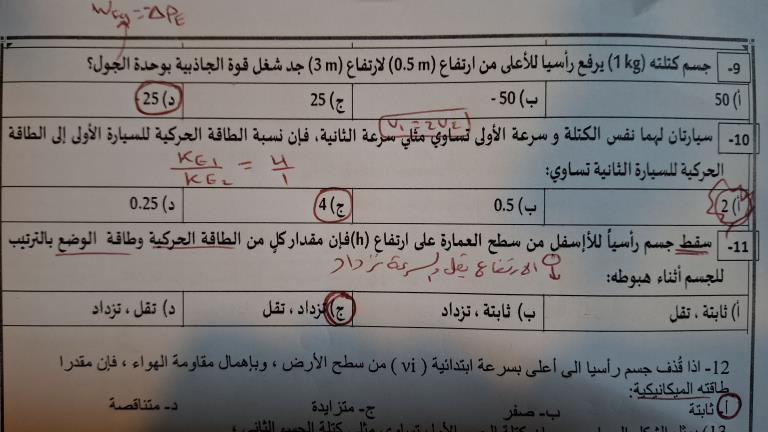 W_Fg = -ΔPE
9- جسم كتلته (1 kg) يرفع رأسيا للأعلى من ارتفاع (0.5 m) لارتفاع (3 m) جد شغل قوة الجاذبية بوحدة الجول؟
أ) 50 ب) 50- ج) 25 د) 25-
V₁ = 2V₂
10- سيارتان لهما نفس الكتلة و سرعة الأولى تساوي مثلي سرعة الثانية، فإن نسبة الطاقة الحركية للسيارة الأولى إلى الطاقة
الحركية للسيارة الثانية تساوي:
KE₁/KE₂ = 4/1
أ) 2 ب) 0.5 ج) 4 د) 0.25
11- سقط جسم رأسياً للأإسفل من سطح العمارة على ارتفاع (h)فإن مقدار كلٍ من الطاقة الحركية وطاقة الوضع بالترتيب
للجسم أثناء هبوطه:
الارتفاع يقل والسرعة تزداد
أ) ثابتة ، تقل ب) ثابتة ، تزداد ج) تزداد ، تقل د) تقل ، تزداد
12- اذا قُذف جسم رأسيا الى أعلى بسرعة ابتدائية ( vi ) من سطح الأرض ، وبإهمال مقاومة الهواء ، فإن مقدرا
طاقته الميكانيكية:
أ- ثابتة ب- صفر ج- متزايدة د- متناقصة